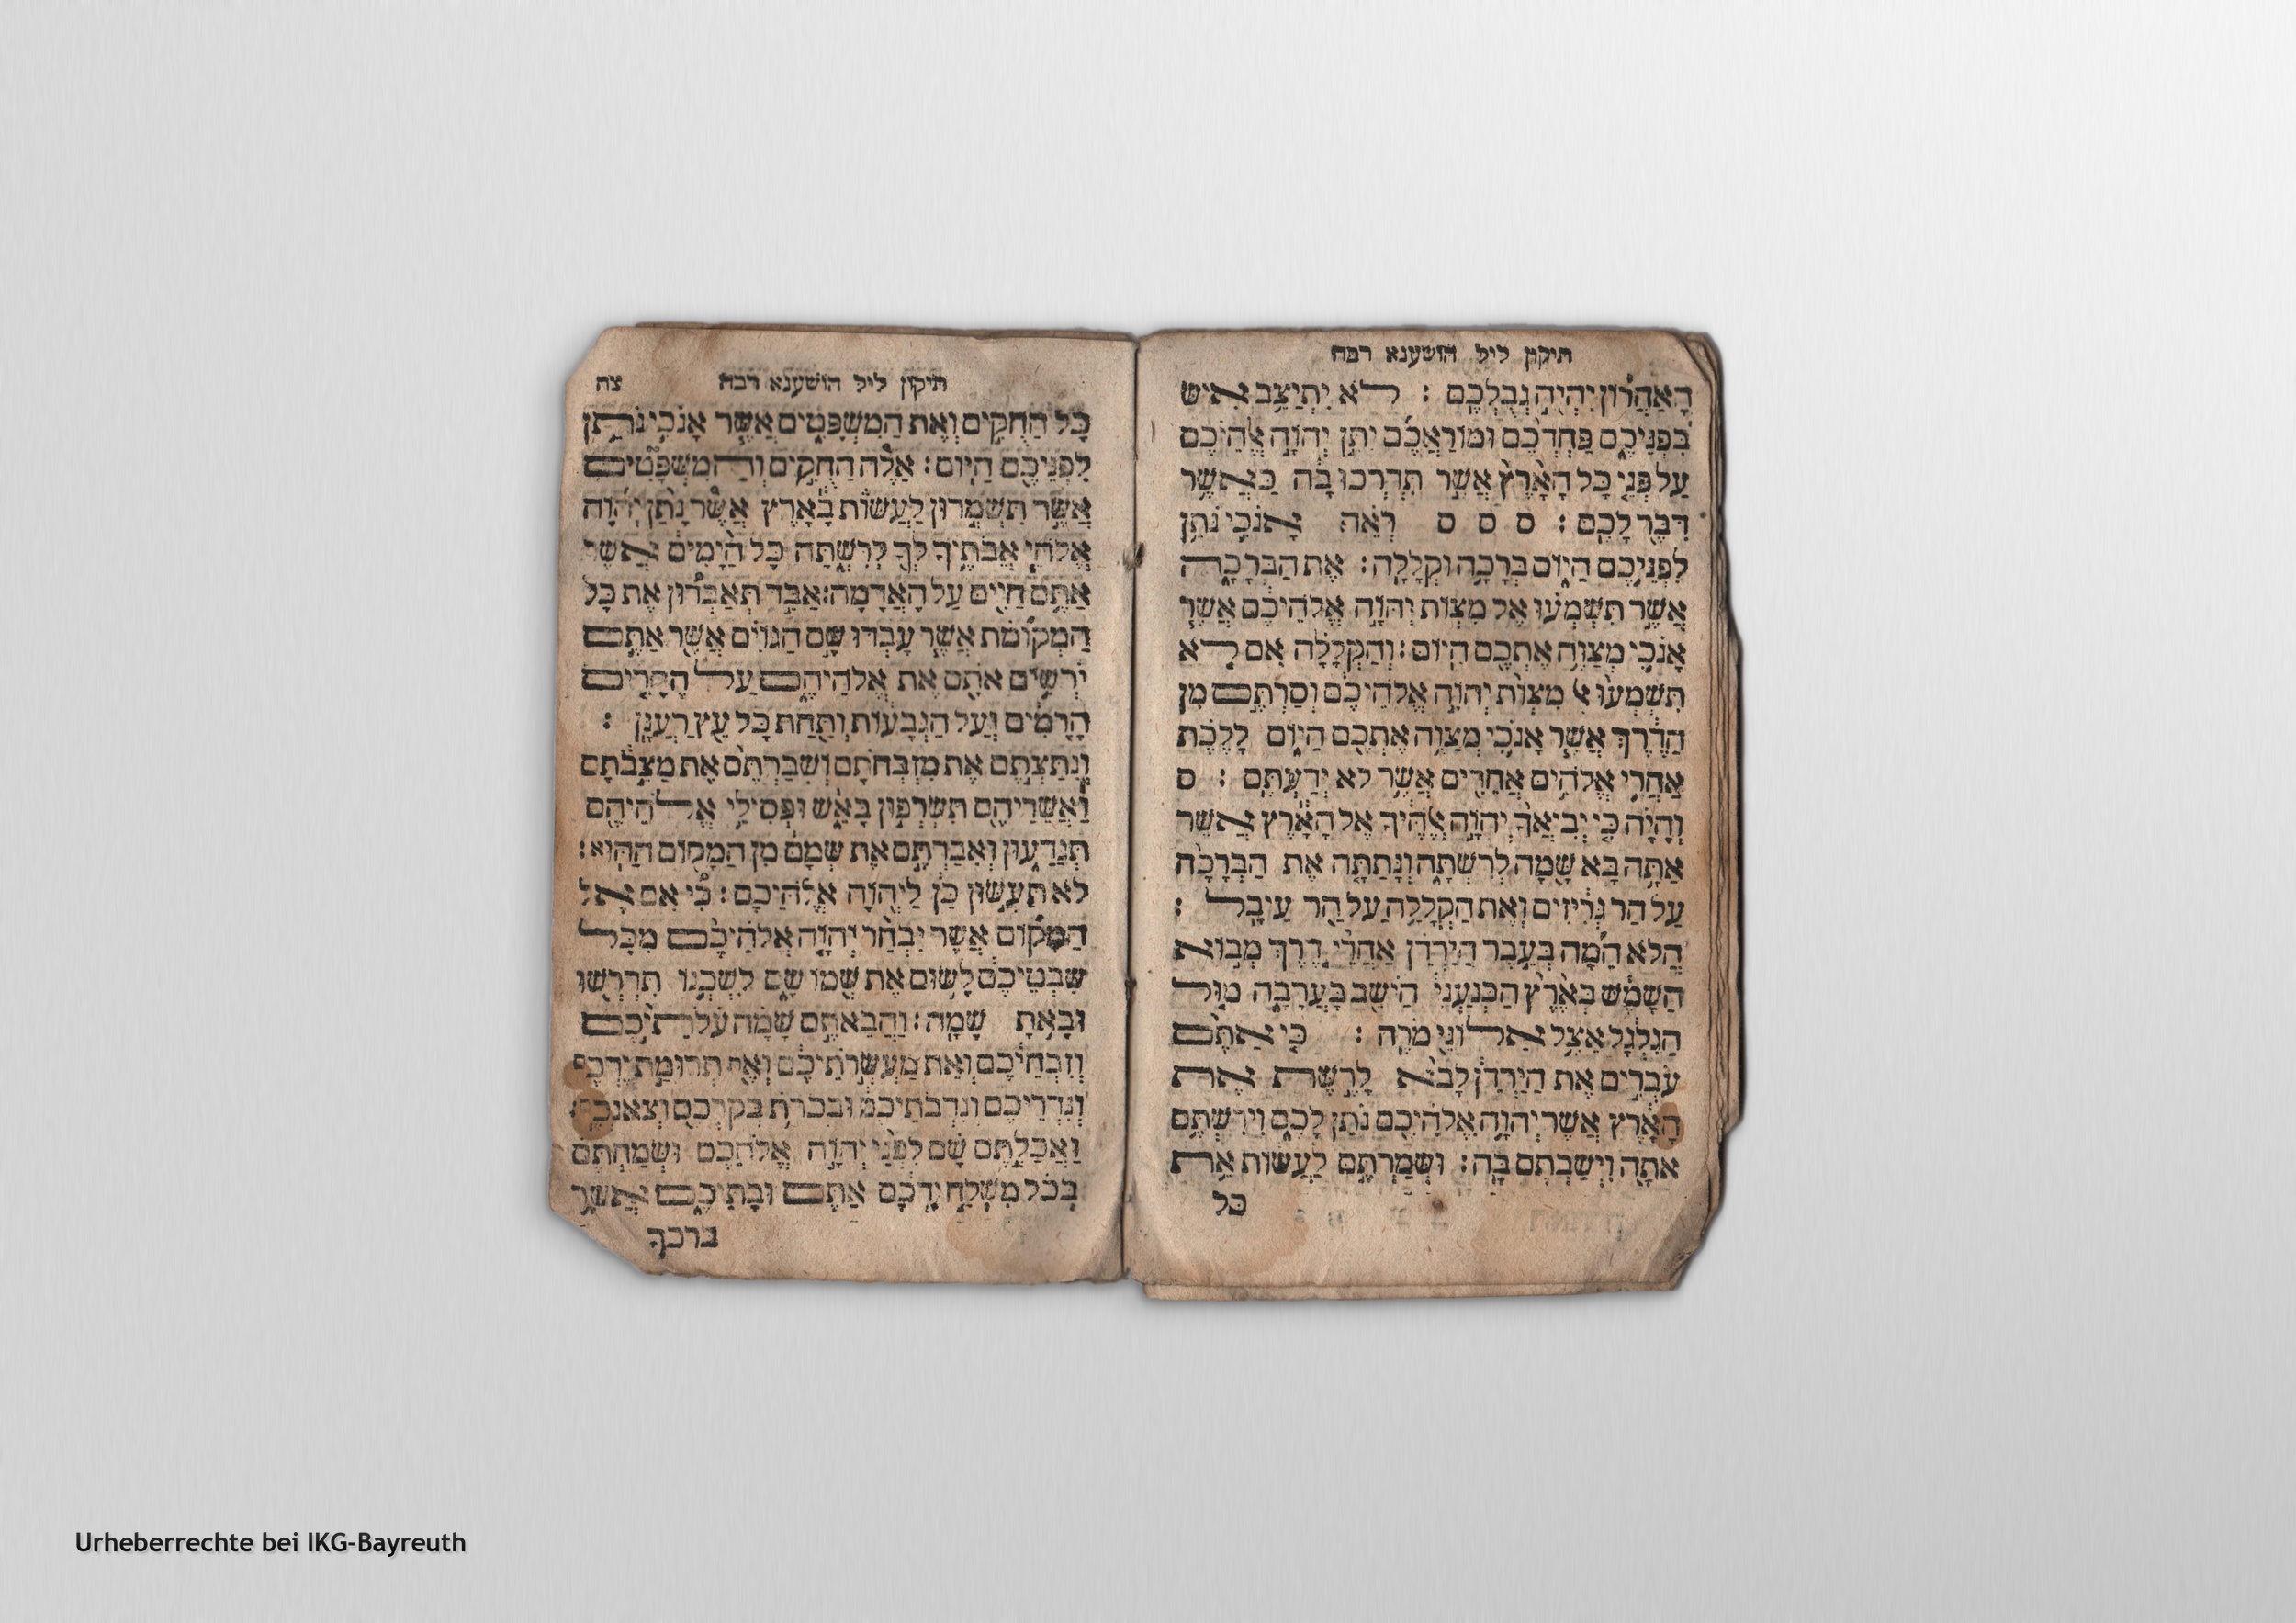 תיקון ליל הושענא רבה
הָאַחֲרוֹן יִהְיֶה גְּבֻלְכֶם : לֹא יִתְיַצֵּב אִישׁ
בִּפְנֵיכֶם פַּחְדְּכֶם וּמוֹרַאֲכֶם יִתֵּן יְהוָה אֱלֹהֵיכֶם
עַל פְּנֵי כָל הָאָרֶץ אֲשֶׁר תִּדְרְכוּ בָהּ כַּאֲשֶׁר
דִּבֶּר לָכֶם : ס ס ס רְאֵה אָנֹכִי נֹתֵן
לִפְנֵיכֶם הַיּוֹם בְּרָכָה וּקְלָלָה : אֶת הַבְּרָכָה
אֲשֶׁר תִּשְׁמְעוּ אֶל מִצְוֹת יְהוָה אֱלֹהֵיכֶם אֲשֶׁר
אָנֹכִי מְצַוֶּה אֶתְכֶם הַיּוֹם : וְהַקְּלָלָה אִם לֹא
תִשְׁמְעוּ אֶל מִצְוֹת יְהוָה אֱלֹהֵיכֶם וְסַרְתֶּם מִן
הַדֶּרֶךְ אֲשֶׁר אָנֹכִי מְצַוֶּה אֶתְכֶם הַיּוֹם לָלֶכֶת
אַחֲרֵי אֱלֹהִים אֲחֵרִים אֲשֶׁר לֹא יְדַעְתֶּם : ס
וְהָיָה כִּי יְבִיאֲךָ יְהוָה אֱלֹהֶיךָ אֶל הָאָרֶץ אֲשֶׁר
אַתָּה בָא שָׁמָּה לְרִשְׁתָּהּ וְנָתַתָּה אֶת הַבְּרָכָה
עַל הַר גְּרִיזִים וְאֶת הַקְּלָלָה עַל הַר עֵיבָל :
הֲלֹא הֵמָּה בְּעֵבֶר הַיַּרְדֵּן אַחֲרֵי דֶּרֶךְ מְבוֹא
הַשֶּׁמֶשׁ בְּאֶרֶץ הַכְּנַעֲנִי הַיֹּשֵׁב בָּעֲרָבָה מוּל
הַגִּלְגָּל אֵצֶל אֵלוֹנֵי מֹרֶה : כִּי אַתֶּם
עֹבְרִים אֶת הַיַּרְדֵּן לָבֹא לָרֶשֶׁת אֶת
הָאָרֶץ אֲשֶׁר יְהוָה אֱלֹהֵיכֶם נֹתֵן לָכֶם וִירִשְׁתֶּם
אֹתָהּ וִישַׁבְתֶּם בָּהּ : וּשְׁמַרְתֶּם לַעֲשׂוֹת אֵת
כל
תיקון ליל הושענא רבה צח
כָּל הַחֻקִּים וְאֶת הַמִּשְׁפָּטִים אֲשֶׁר אָנֹכִי נֹתֵן
לִפְנֵיכֶם הַיּוֹם : אֵלֶּה הַחֻקִּים וְהַמִּשְׁפָּטִים
אֲשֶׁר תִּשְׁמְרוּן לַעֲשׂוֹת בָּאָרֶץ אֲשֶׁר נָתַן יְהוָה
אֱלֹהֵי אֲבֹתֶיךָ לְךָ לְרִשְׁתָּהּ כָּל הַיָּמִים אֲשֶׁר
אַתֶּם חַיִּים עַל הָאֲדָמָה : אַבֵּד תְּאַבְּדוּן אֶת כָּל
הַמְּקוֹמֹת אֲשֶׁר עָבְדוּ שָׁם הַגּוֹיִם אֲשֶׁר אַתֶּם
יֹרְשִׁים אֹתָם אֶת אֱלֹהֵיהֶם עַל הֶהָרִים
הָרָמִים וְעַל הַגְּבָעוֹת וְתַחַת כָּל עֵץ רַעֲנָן :
וְנִתַּצְתֶּם אֶת מִזְבְּחֹתָם וְשִׁבַּרְתֶּם אֶת מַצֵּבֹתָם
וַאֲשֵׁרֵיהֶם תִּשְׂרְפוּן בָּאֵשׁ וּפְסִילֵי אֱלֹהֵיהֶם
תְּגַדֵּעוּן וְאִבַּדְתֶּם אֶת שְׁמָם מִן הַמָּקוֹם הַהוּא :
לֹא תַעֲשׂוּן כֵּן לַיהוָה אֱלֹהֵיכֶם : כִּי אִם אֶל
הַמָּקוֹם אֲשֶׁר יִבְחַר יְהוָה אֱלֹהֵיכֶם מִכָּל
שִׁבְטֵיכֶם לָשׂוּם אֶת שְׁמוֹ שָׁם לְשִׁכְנוֹ תִדְרְשׁוּ
וּבָאתָ שָׁמָּה : וַהֲבֵאתֶם שָׁמָּה עֹלֹתֵיכֶם
וְזִבְחֵיכֶם וְאֵת מַעְשְׂרֹתֵיכֶם וְאֵת תְּרוּמַת יֶדְכֶם
וְנִדְרֵיכֶם וְנִדְבֹתֵיכֶם וּבְכֹרֹת בְּקַרְכֶם וְצֹאנְכֶם
וַאֲכַלְתֶּם שָׁם לִפְנֵי יְהוָה אֱלֹהֵכֶם וּשְׂמַחְתֶּם
בְּכֹל מִשְׁלַח יֶדְכֶם אַתֶּם וּבָתֵּיכֶם אֲשֶׁר
ברכך
Urheberrechte bei IKG-Bayreuth